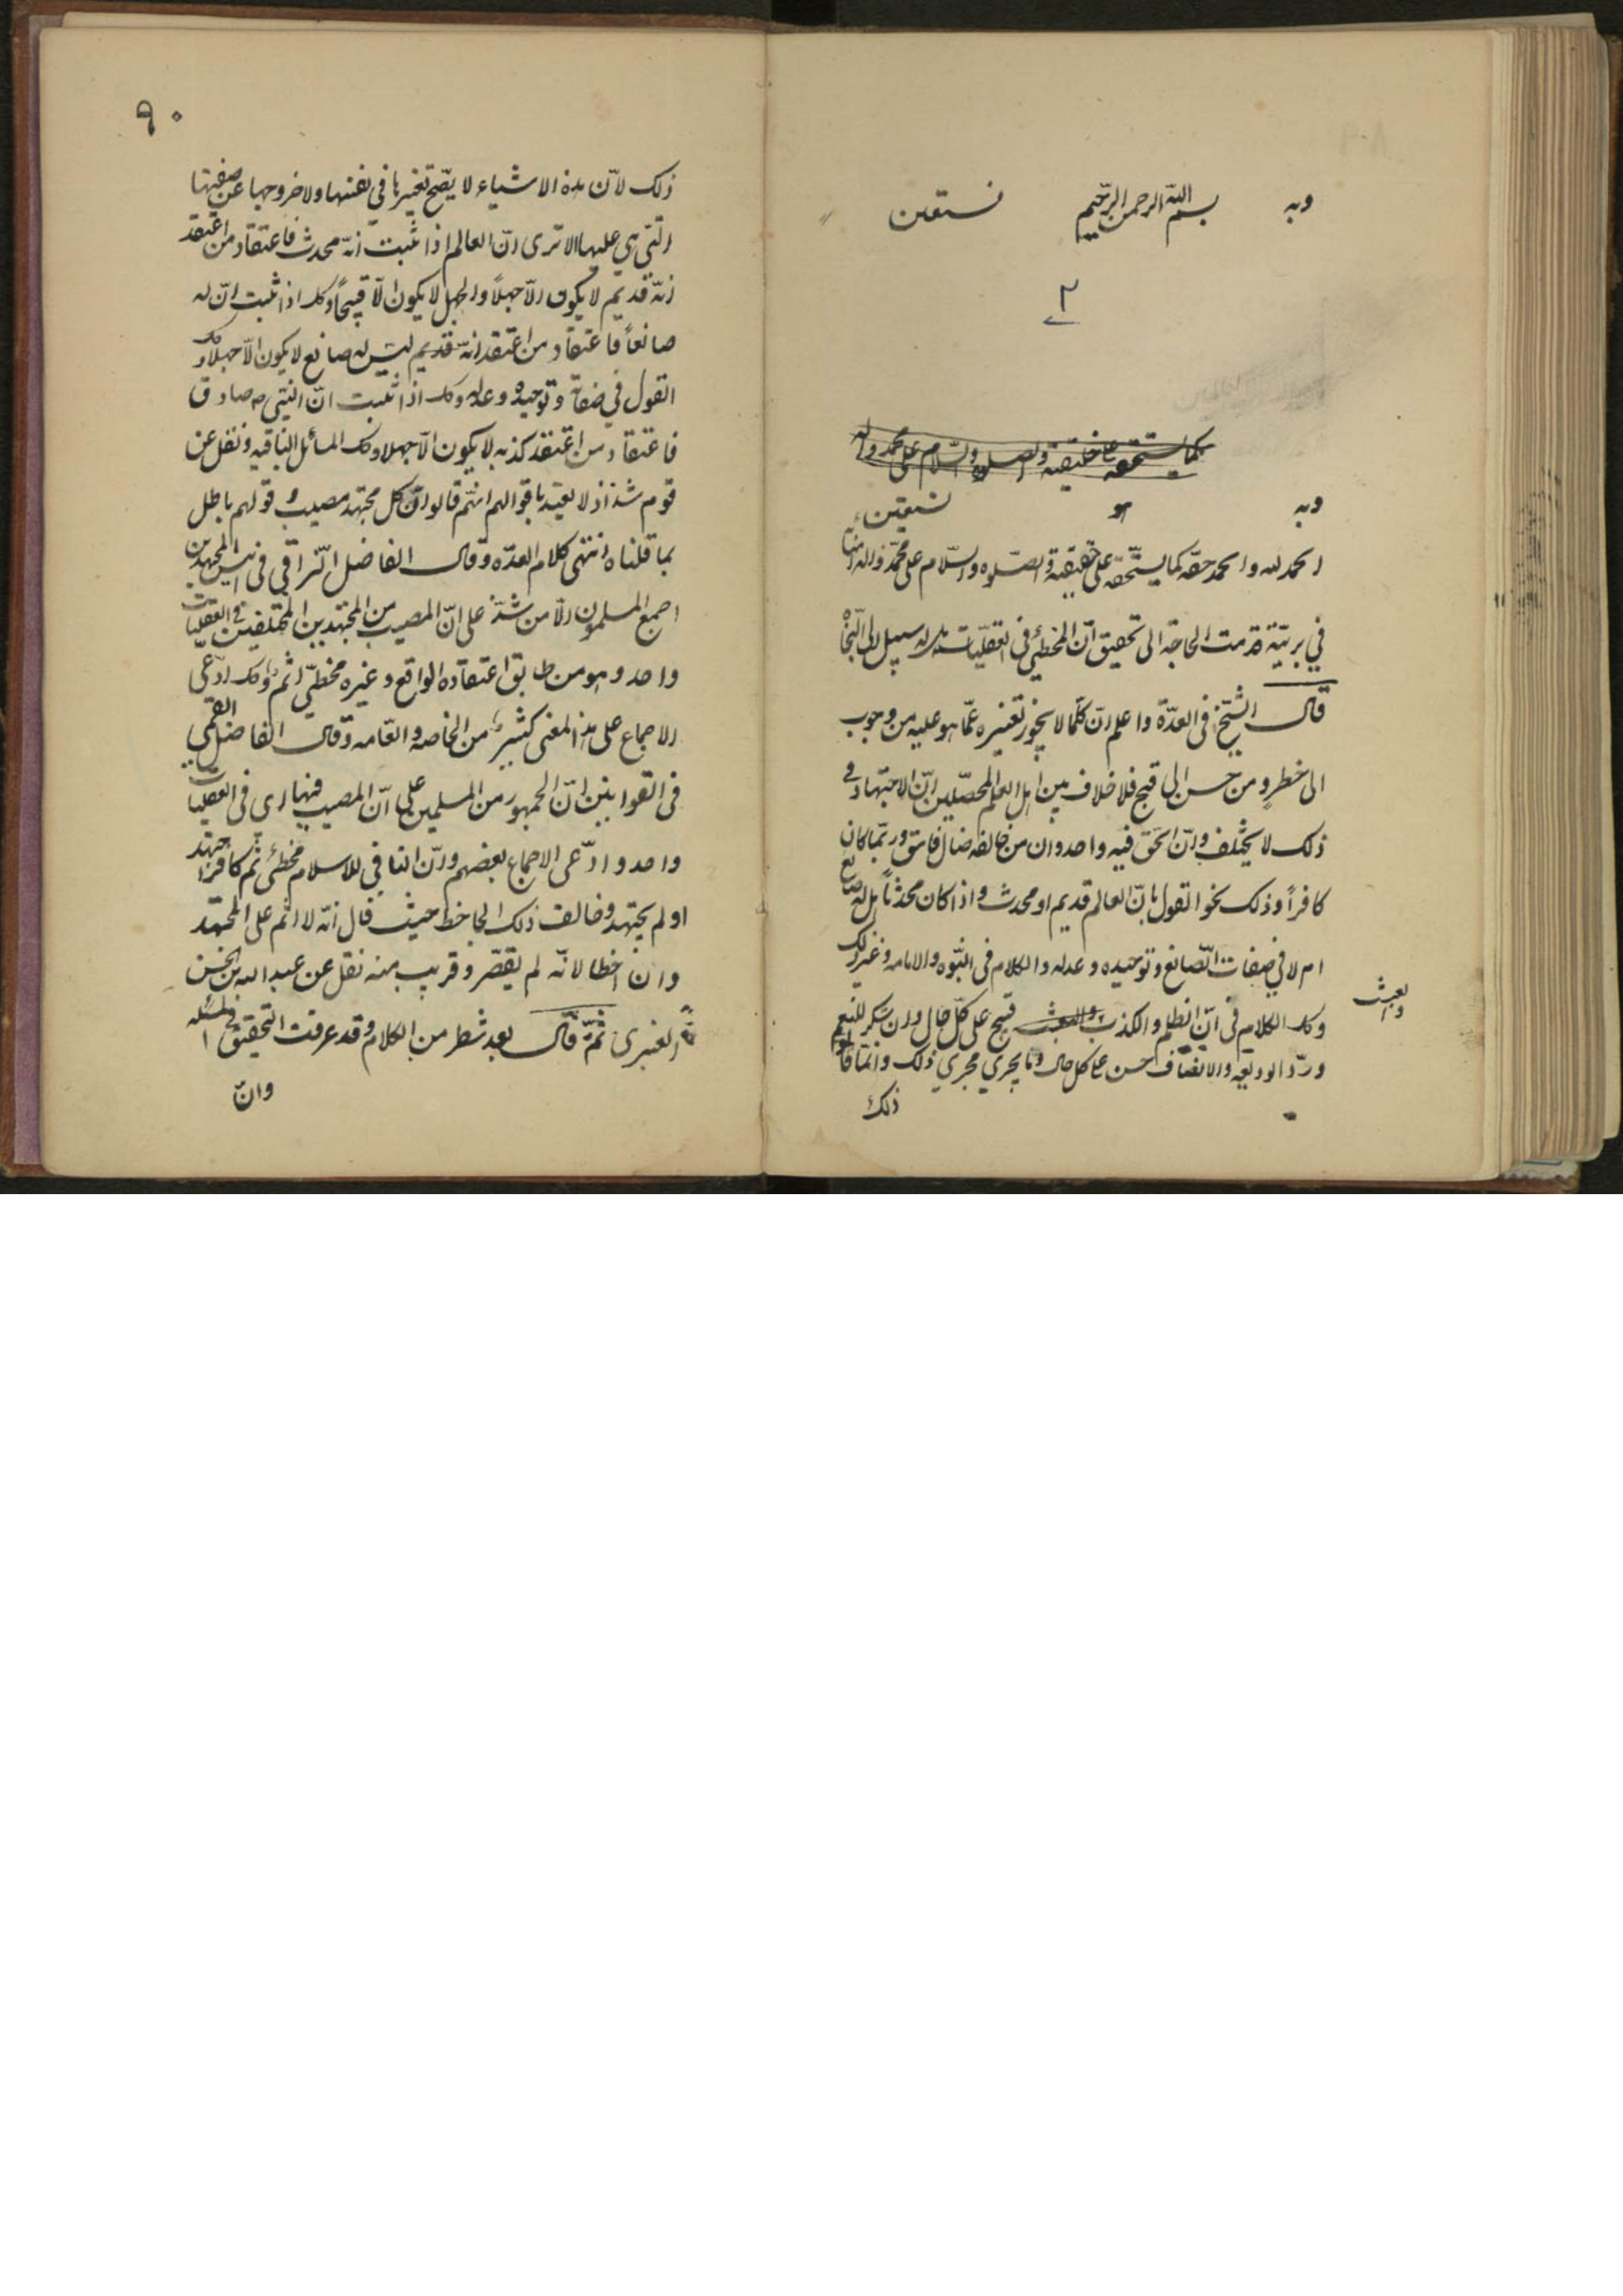 وبه بسم الله الرحمن الرحيم نستعين
٢
كما يستحقه على خليقته والصلوة والسلام على محمد واله
وبه نستعين
الحمد لله والحمد حقه كما يستحقه على خليقته والصّلوه والسّلام على محمّد واله
في بريّته قد مست الحاجة الى تحقيق انّ المخطئ فى العقليّات هل له سبيل الى النّجاة
قال الشيخ فى العدّة واعلم انّ كلّما لا يجوز تغييره عمّا هو عليه من وجوب
الى خطر ومن حسن الى قبح فلا خلاف بين اهل العلم المحصّلين انّ الاجتهاد في
ذلك لا يختلف وانّ الحقّ فيه واحد وان من خالفه ضال فاسق وربّما كان
كافراً وذلك نحو القول بانّ العالم قديم او محدث واذا كان محدثاً هل له صانع
ام لا في صفات الصّانع وتوحيده وعدله والكلام فى النّبوه والامامه وغير ذلك
وكك الكلام فى انّ الظلم والكذب والعبث قبيح على كلّ حال وان شكر المنعم
والعبث
وردّ الوديعه والانصاف حسن على كل حال وما يجري مجرى ذلك وانّما قالوا
ذلك
٩٠
ذلك لانّ هذه الاشياء لا يصّح تغيّرها في نفسها ولا خروجها عن صفتها
الّتي هي عليها الا ترى انّ العالم اذا ثبت انّه محدث فاعتقاد من اعتقد
انّه قديم لا يكون الاّ جهلاً والجهل لا يكون الاّ قبيحاً وكك اذا ثبت انّ له
صانعاً فاعتقاد من اعتقد انّه قديم ليس له صانع لا يكون الاّ جهلا وكك
القول في صفاته وتوحيده وعدله وكك اذا ثبت انّ النبّي ص صادق
فاعتقاد من اعتقد كذبه لا يكون الاّ جهلا وكك المسائل الباقيه ونقل عن
قوم شذاذ لا يعتدّ باقوالهم انّهم قالوا انّ كل مجتهد مصيب وقولهم باطل
بما قلناه انتهى كلام العدّه وقال الفاضل النّراقي في انيس المجتهدين
اجمع المسلمون الاّ من شذّ على انّ المصيب من المجتهدين المختلفين في العقليّات
واحد وهو من طابق اعتقاده الواقع وغيره مخطئ اثم وكك ادّعى
الاجماع على هذا المعنى كثير من الخاصه والعّامه وقال الفاضل القمّي
فى القوانين انّ الجمهور من المسلمين على انّ المصيب فيها اى فى العقليات
واحد وادّعى الاجماع بعضهم وانّ النافي للاسلام مخطئ آثم كافر اجتهد
او لم يجتهد وخالف ذلك الجاحظ حيث قال انّه لا اثم على المجتهد
وان اخطا لانّه لم يقصّر وقريب منه نقل عن عبد الله بن الحسن
العنبرى ثمّ قال بعد شطر من الكلام وقد عرفت التحقيق في المسئله
وانّ